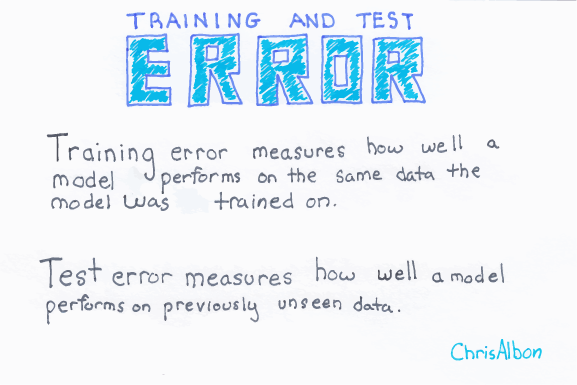 TRAINING AND TEST
ERROR
Training error measures how well a
model performs on the same data the
model was trained on.
Test error measures how well a model
performs on previously unseen data.
ChrisAlbon